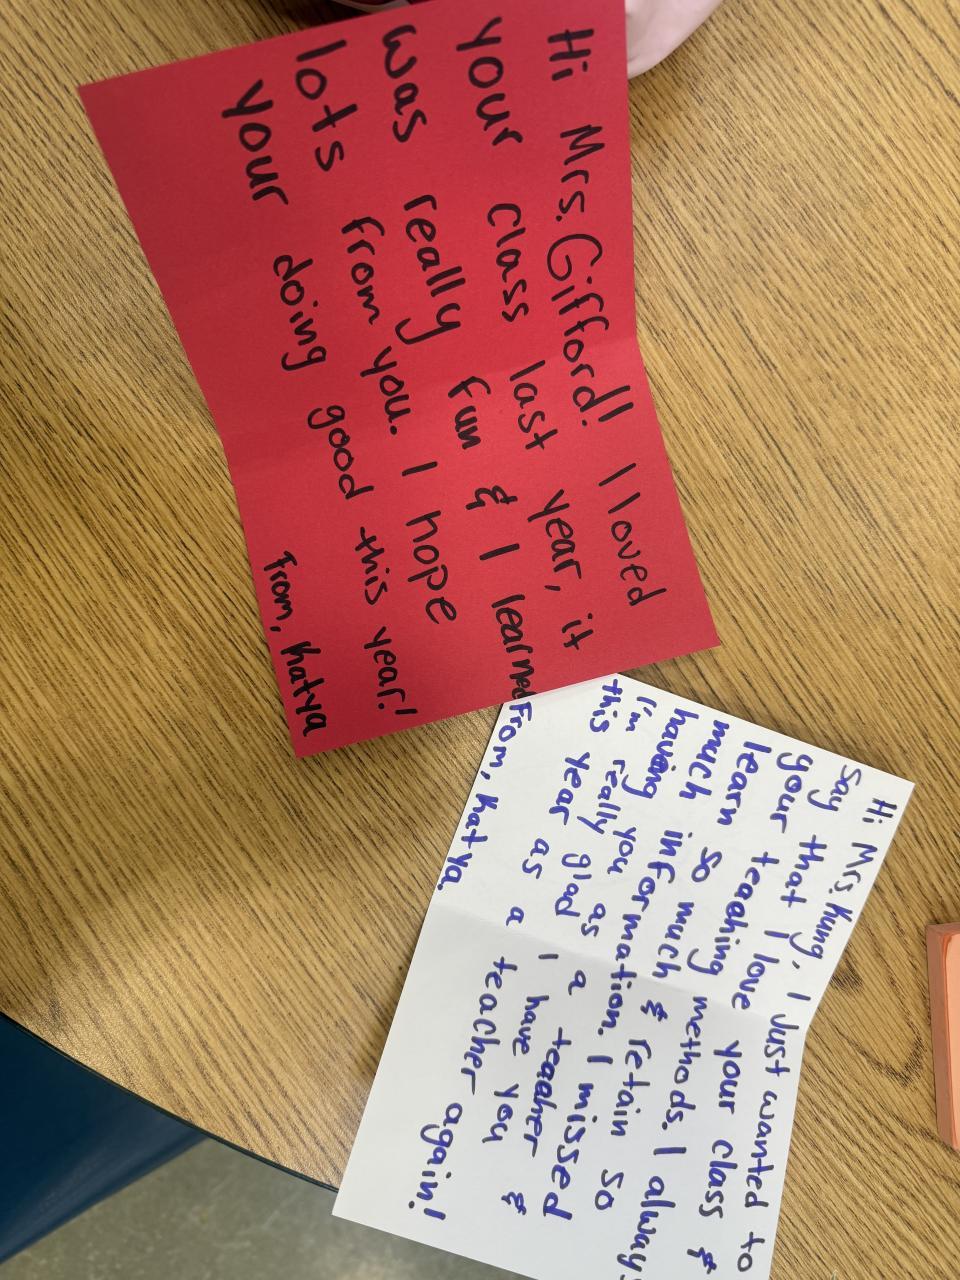 Hi Mrs. Gifford! I loved
your class last year, it
was really fun & I learned
lots from you. I hope
your doing good this year!
From, Katya
Hi Mrs. Kung, I Just wanted to
say that I love your class &
your teaching methods. I always
learn so much & retain so
much information. I missed
having you as a teacher &
I'm really glad I have you
this year as a teacher again!
From, Katya.